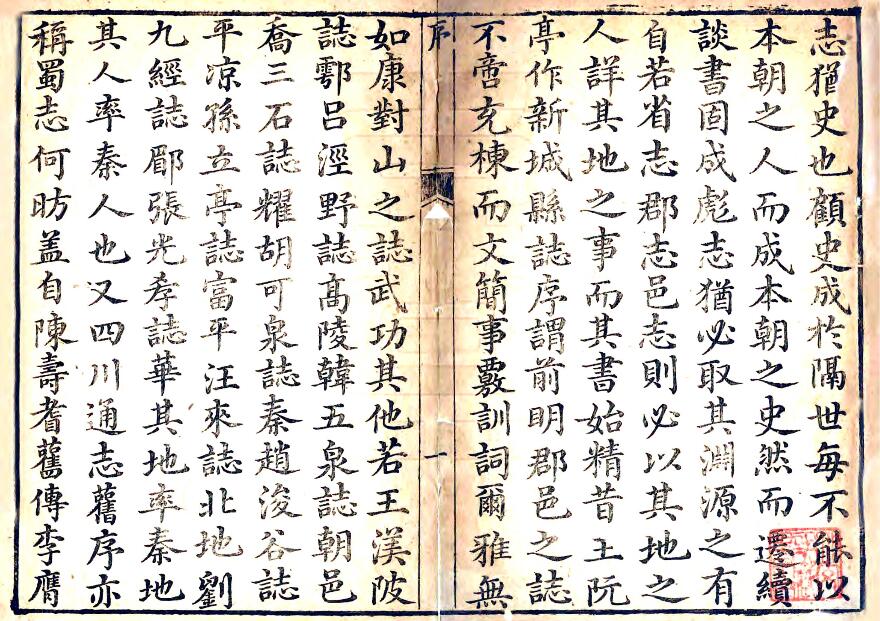 志猶史也顧史成於隔世每不能以
本朝之人而成本朝之史然而遷續
談書固成彪志猶必取其淵源之有
自若省志郡志邑志則必以其地之
人詳其地之事而其書始精昔王阮
亭作新城縣誌序謂前明郡邑之誌
不啻充棟而文簡事覈訓詞爾雅無
序
一
如康對山之誌武功其他若王渼陂
誌鄠呂涇野誌髙陵韓五泉誌朝邑
喬三石誌耀胡可泉誌秦趙浚谷誌
平凉孫立亭誌富平汪來誌北地劉
九經誌郿張光孝誌華其地率秦地
其人率秦人也又四川通志舊序亦
稱蜀志何昉盖自陳壽耆舊傳李膺